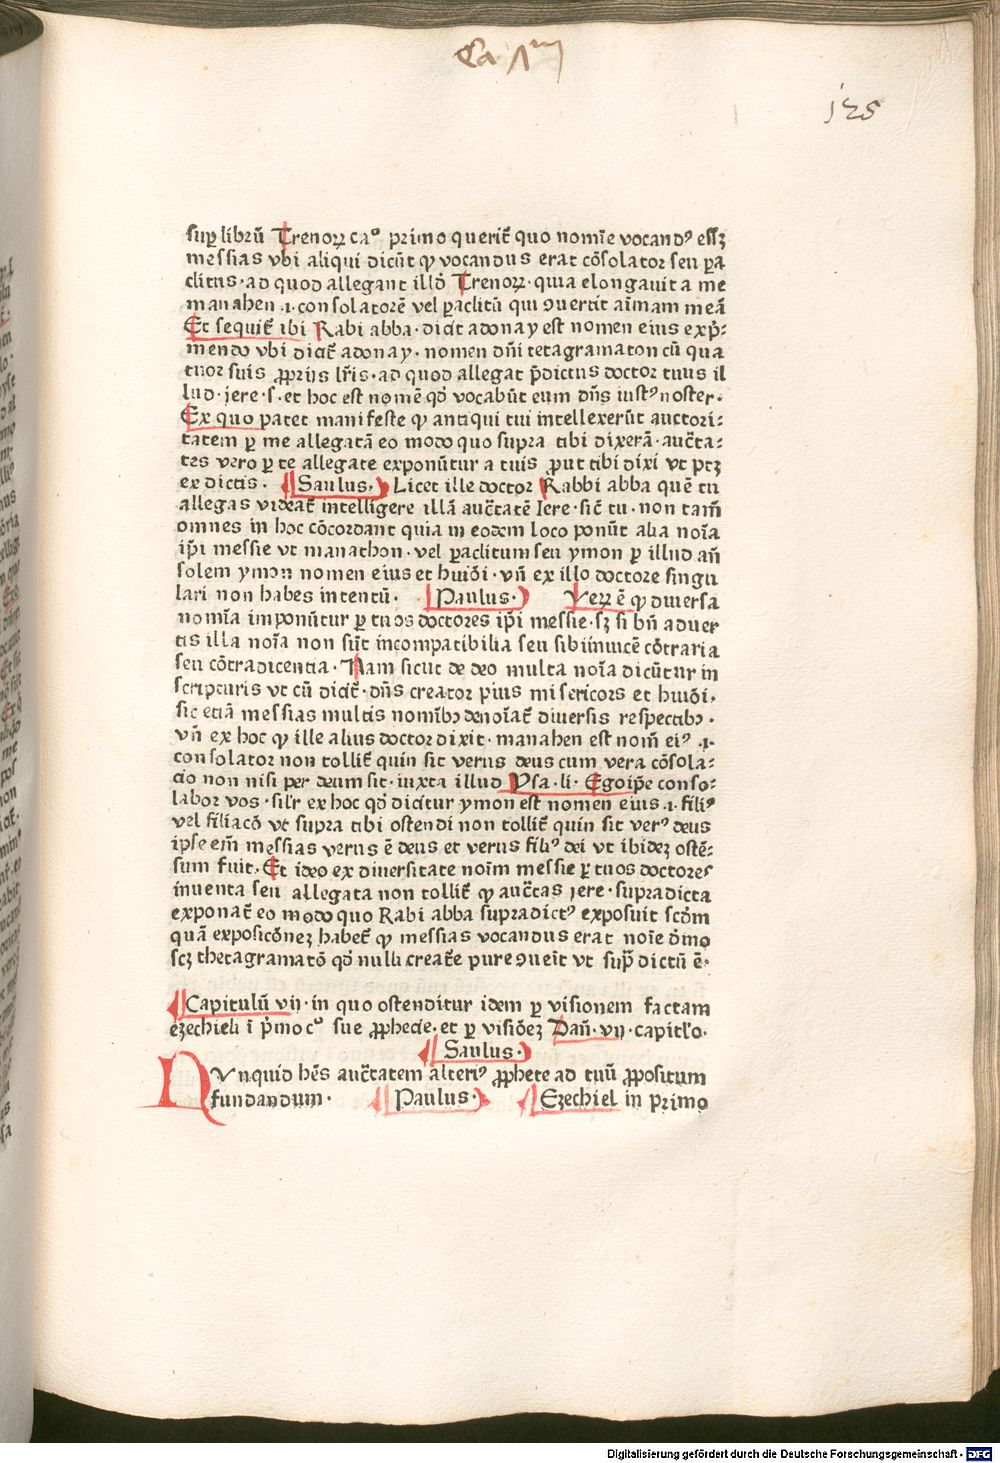 Ca 7m
125
sup̱ librū Trenoꝝ ca° primo querit᷑ quo nomīe vocandꝰ essꝫ
messias vbi aliqui dicūt ꝙ vocandus erat cōsolator seu ꝑa
clitus · ad quod allegant illđ Trenoꝝ · quia elongauit a me
manahen .i. consolatorē vel ꝑaclitū qui ꝯuertit aīmam meā
Et sequit᷑ ibi Rabi abba · dicit adonay est nomen eius expͥ-
mendo vbi dicit᷑ adonay · nomen dn̄i tetagramaton cū qua
tuor suis ꝓprijs lr̄is · ad quod allegat p̄dictus doctor tuus il
lud · jere · s · et hoc est nomē qđ vocabūt eum dn̄s iustꝰ noster ·
Ex quo patet manifeste ꝙ antiqui tui intellexerūt auctori-
tatem ꝑ me allegatā eo modo quo supra tibi dixerā · auct̄a-
tes vero ꝑ te allegate exponūtur a tuis ꝓut tibi dixi vt ptꝫ
ex dictis · Saulus · Licet ille doctor Rabbi abba quē tu
allegas videat᷑ intelligere illā auct̄atē Iere · sic̄ tu · non tam̄
omnes in hoc cōcordant quia in eodem loco ponūt alia noīa
ip̄i messie vt manachon · vel ꝑaclitum seu ymon ꝑ illud an̄
solem ymon nomen eius et huiōi · vn̄ ex illo doctore singu
lari non habes intentū · Paulus · Veꝝ ē ꝙ diuersa
nomīa imponūtur ꝑ tuos doctores ip̄i messie · sꝫ si bn̄ aduer
tis illa noīa non sūt incompatibilia seu sibiinuicē cōtraria
seu cōtradicentia · Nam sicut de deo multa noīa dicūtur in
scripturis vt cū dicit᷑ · dn̄s creator pius misericors et huiōi ·
sic etiā messias multis nomībꝫ denoīat᷑ diuersis respectibꝫ ·
vn̄ ex hoc ꝙ ille alius doctor dixit · manahen est nom̄ eiꝰ .i.
consolator non tollit᷑ quin sit verus deus cum vera cōsola-
cio non nisi per deum sit · iuxta illud Psa · li · Egoip̄e conso-
labor vos · sil'r ex hoc qđ dicitur ymon est nomen eius .i. filiꝰ
vel filiacō vt supra tibi ostendi non tollit᷑ quin sit verꝰ deus
ipse em̄ messias verus ē deus et verus filiꝰ dei vt ibideꝫ ostē-
sum fuit · Et ideo ex diuersitate noīm messie ꝑ tuos doctores
inuenta seu allegata non tollit᷑ ꝙ auct̄as jere · supradicta
exponat᷑ eo modo quo Rabi abba supradictꝰ exposuit scđm
quā exposicōneꝫ habet᷑ ꝙ messias vocandus erat noīe dīno
scꝫ thetagramatō qđ nulli creat᷑e pure ꝯueīt vt sup̱ dictū ē ·
Capitulū vij · in quo ostenditur idem ꝑ visionem factam
ezechieli ī pͥmo c° sue ꝓphecie · et ꝑ visiōeꝫ Dan̄ · vij · capitl'o ·
Saulus ·
NVnquid hēs auct̄atem alteriꝰ ꝓphete ad tuū ꝓpositum
fundandum · Paulus · Ezechiel in primo
Digitalisierung gefördert durch die Deutsche Forschungsgemeinschaft - DFG